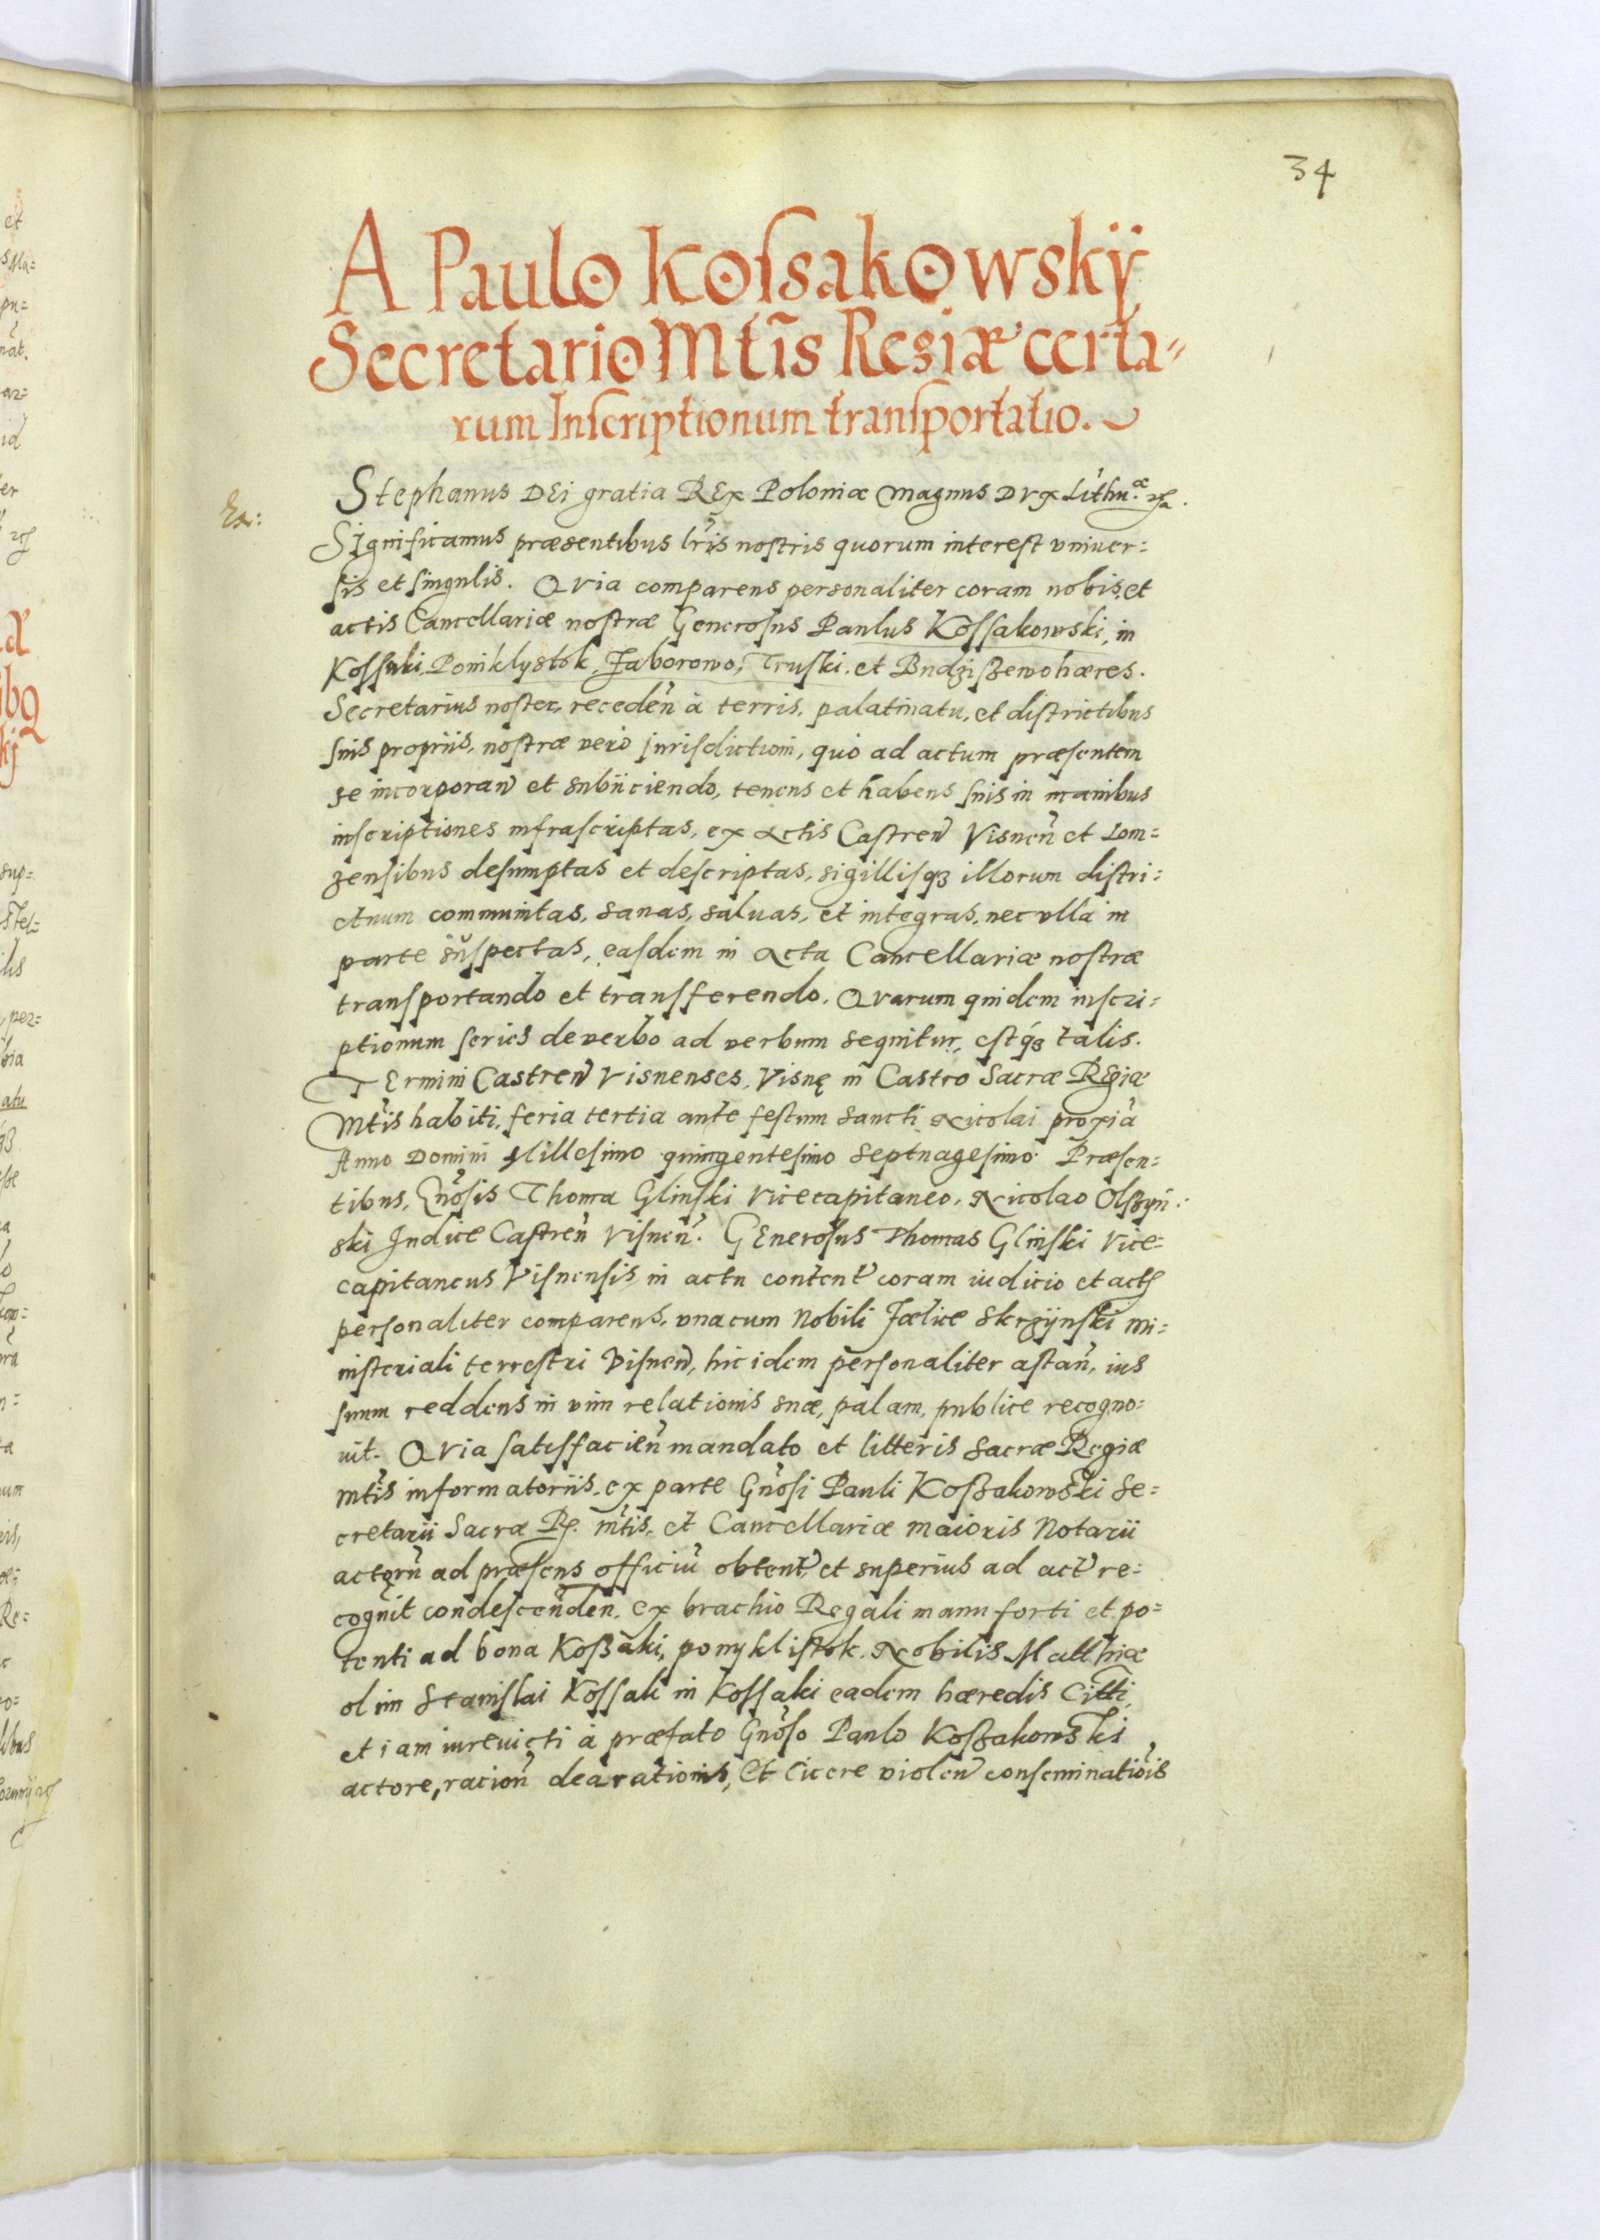 34
A Paulo Kossakowskÿ
Secretario Mtis Regiæ certa=
rum Inscriptionum transportatio.
Ex:
Stephanus DEi gratia REx Poloniæ Magnus Dvx Lithu.æ
Significamus præsentibus lris nostris quorum interest vniuer=
sis et singulis. Qvia comparens personaliter coram nobis, et
actis Cancellariæ nostræ Generosus Paulus Kossakowski, in
Kossaki, Poniklystok, Jaborowo, Truski, et Budziszewo hæres.
Secretarius noster, receden à terris, palatinatu, et districtibus
suis propriis, nostræ verò jurisdictioni, quò ad actum præsentem
se incorporan et subiiciendo, tenens et habens suis in manibus
inscriptiones infrascriptas, ex Actis Castren Visnen et Lom=
zensibus desumptas et descriptas, sigillisqz illorum distri=
ctuum communitas, sanas, saluas, et integras, nec vlla in
parte suspectas, easdem in Acta Cancellariæ nostræ
transportando et transferendo. Qvarum quidem inscri=
ptionum series de verbo ad verbum sequitur, estqz talis.
TErmini Castren Visnenses, Visnę in Castro Sacræ REgiæ
Mtis habiti, feria tertia ante festum Sancti Nicolai proxia
Anno Domini Millesimo quingentesimo Septuagesimo. Præsen=
tibus, Gnosis Thoma Glinski Vicecapitaneo, Nicolao Olszyn=
ski Judice Castren Visnen. GEnerosus Thomas Glinski Vice=
capitaneus Visnensis, in actu content coram iudicio et actis
personaliter comparens, vnacum Nobili Fœlice Skrzÿnski mi=
nisteriali terrestri Visnen, hic idem personaliter astan, ius
suum reddens in vim relationis suæ, palam, publice recogno=
uit. Qvia satisfacien mandato et litteris Sacræ Regiæ
Mtis informatoriis, ex parte Gnosi Pauli Koszakowski Se=
cretarii Sacræ R. Mtis, et Cancellariæ maioris Notarii
actoru ad præsens officiu obtent, et superius ad act re=
cognit condescenden, ex brachio Regali manu forti et po=
tenti ad bona Koszaki, ponyklistok, Nobilis Matthiæ
olim Stanislai Kossak in Kossaki eadem hæredis Citti,
et iam iurevicti à præfato Gnoso Paulo Koszakowski
actore, racion dearationis, et sicere violen conseminatiois